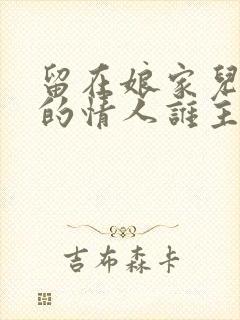 留在娘家兒
的情人誰主
吉布森卡